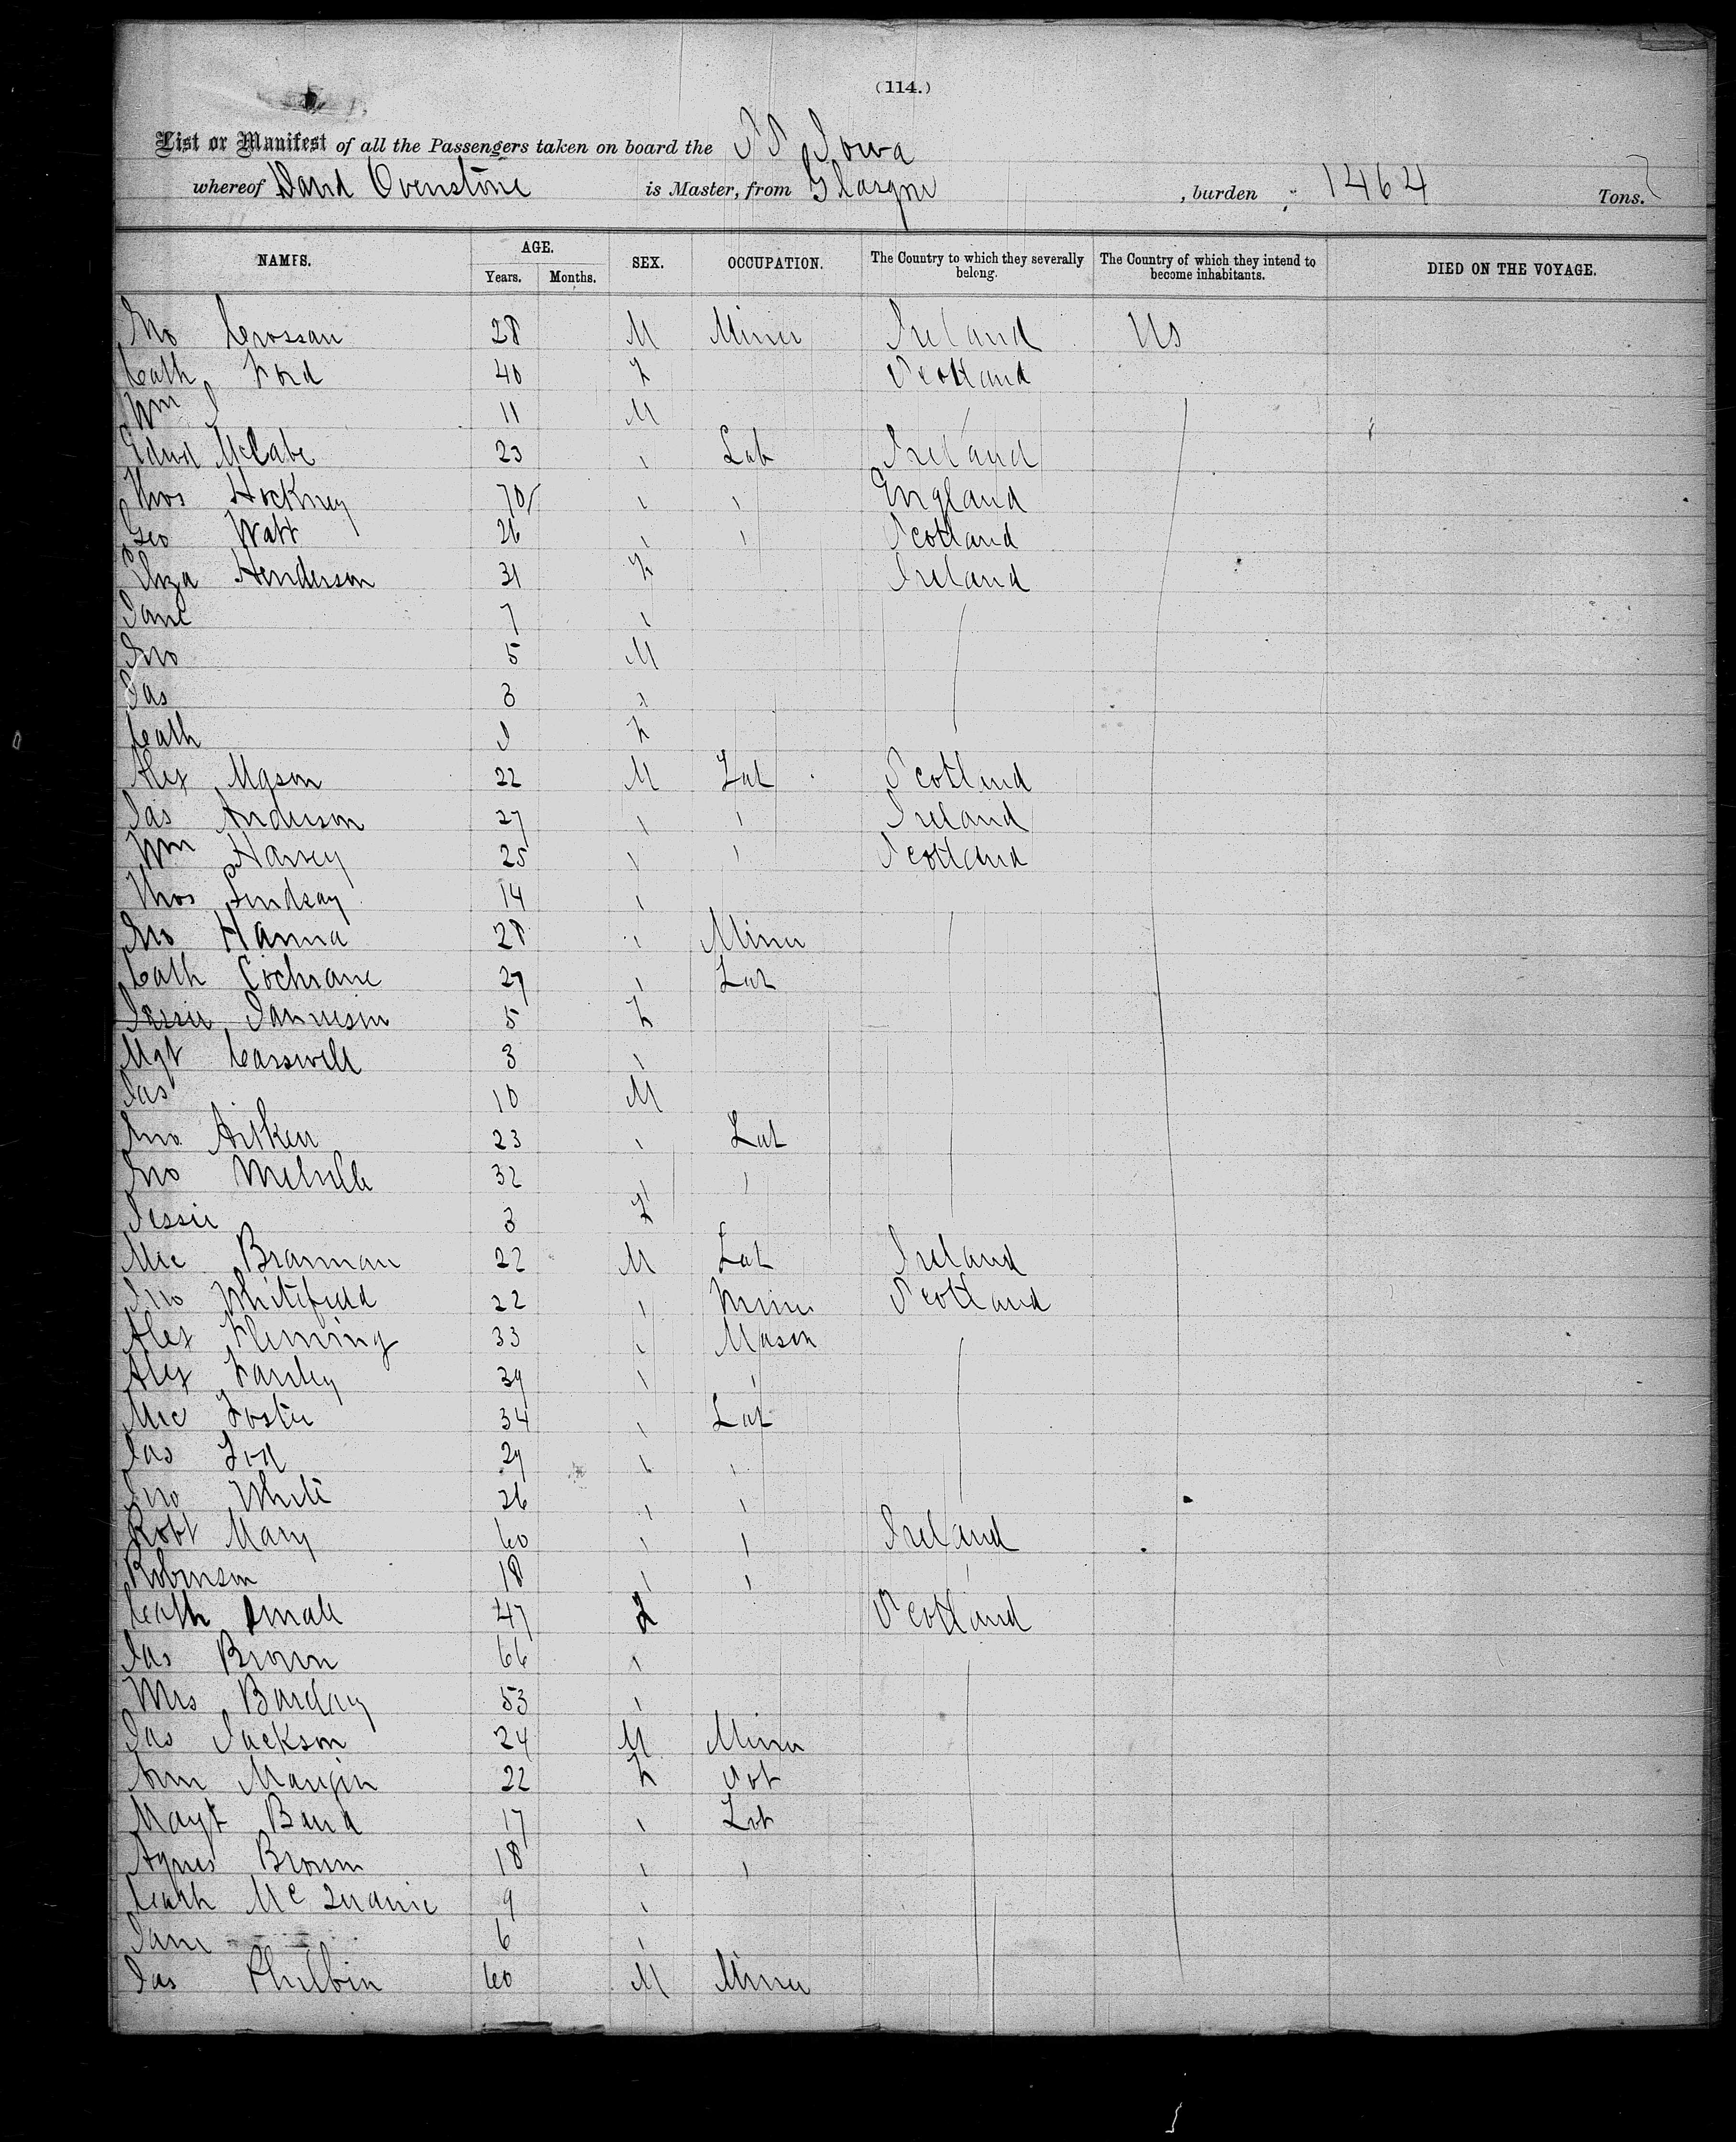 (114.)
List or Manifest of all the Passengers taken on board the SS Iowa
whereof David Ovenstone is Master, from Glasgow , burden 1464 Tons.
NAMES. AGE. Years. Months. SEX. OCCUPATION. The Country to which they severally belong. The Country of which they intend to become inhabitants. DIED ON THE VOYAGE.
Jno Crossan 28 M Miner Ireland US
Cath Ford 40 F Scotland
Wm 11 M
Edwd McCabe 23 Lab Ireland
Thos Hockney 70 England
Geo Watt 26 Scotland
Eliza Henderson 31 F Ireland
Jane 7
Jno 5 M
Jas 3
Cath F
Alex Mason 22 M Lab Scotland
Jas Anderson 27 Ireland
Wm Harvey 25 Scotland
Thos Lindsay 14
Jno Hanna 28 Miner
Cath Cochrane 27 Lab
Jessie Jamieson 5 F
Mgt Carswell 3
Jas 10 M
Jno Aitken 23 Lab
Jno Melville 32
Jessie 3 F
Mic Brannan 22 M Lab Ireland
Jno Whitefield 22 Miner Scotland
Alex Fleming 33 Mason
Alex Farley 39
Mic Foster 34 Lab
Jas 29
Jno White 26
Robt Mary 60 Ireland
Robinson 18
Cath Small 47 F Scotland
Jas Brown 66
Mrs Barclay 53
Jas Jackson 24 M Miner
Ann 22 F
Magt Baird 17
Agnes Brown 18
Cath 9
Jane 6
Jas Philbin 60 M Miner